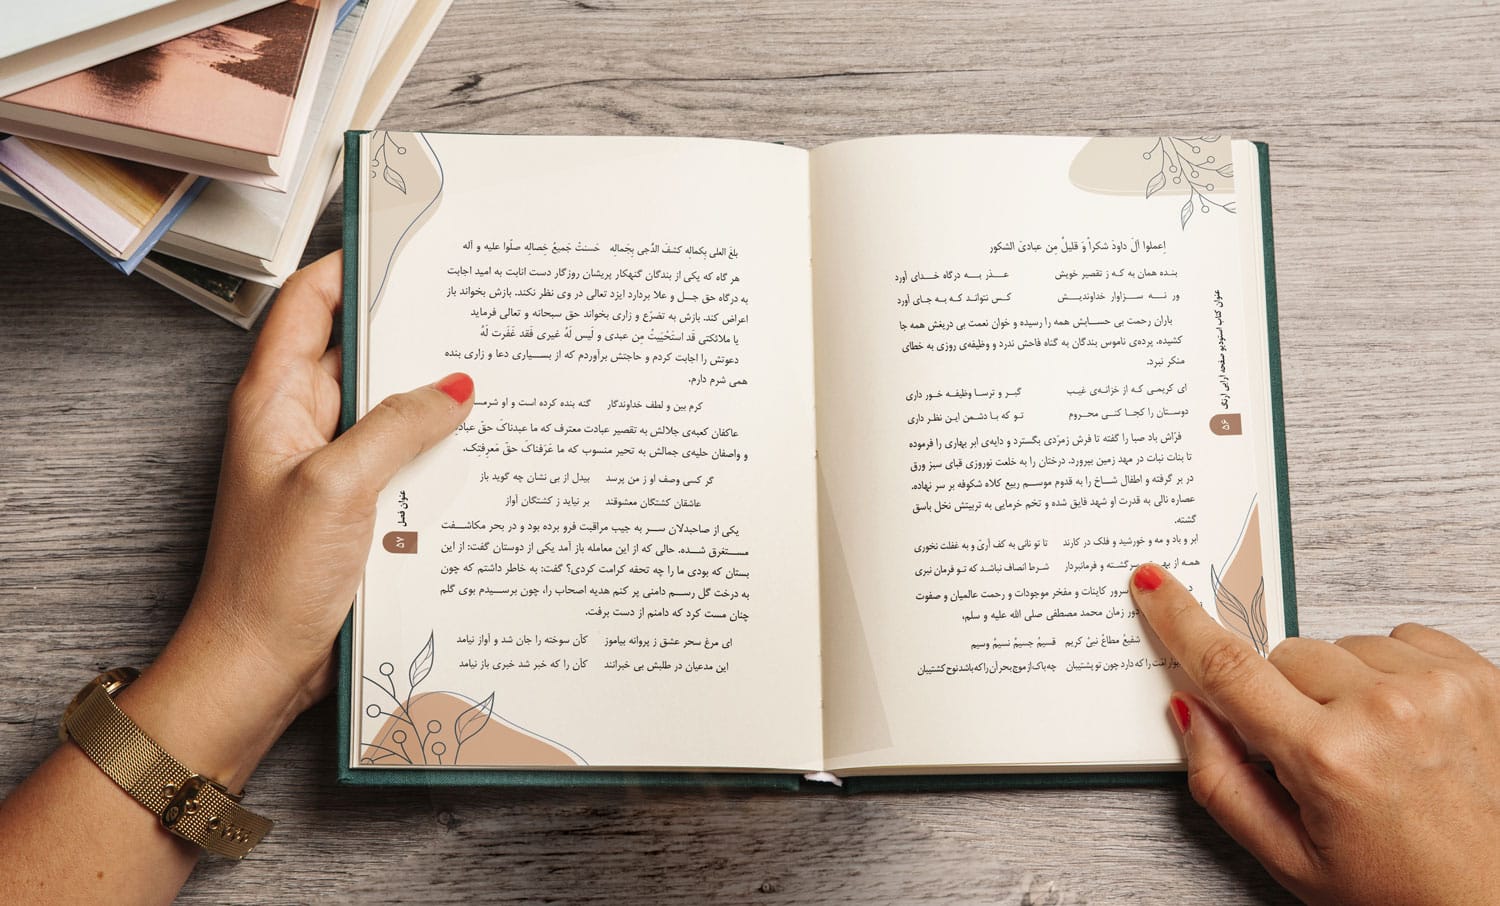 اِعملوا آلَ داودَ شکراً وَ قلیلٌ مِن عبادیَ الشکور
بنـده همان به کـه ز تقصیر خویش عـــذر بـــه درگاه خـــدای آورد
ور نـــه ســـزاوار خداوندیـــش کـس نتوانـد کـه بـه جـای آورد
باران رحمت بی حســابش همه را رسیده و خوان نعمت بی دریغش همه جا
کشیده. پرده‌ی ناموس بندگان به گناه فاحش ندرد و وظیفه‌ی روزی به خطای
منکر نبرد.
ای کریمـی کـه از خزانـه‌ی غیـب گبـر و ترسـا وظیفـه خـور داری
دوسـتان را کجـا کنـی محـروم تـو کـه بـا دشـمن ایـن نظـر داری
فرّاش باد صبا را گفته تا فرش زمرّدی بگسترد و دایه‌ی ابر بهاری را فرموده
تا بنات نبات در مهد زمین بپرورد. درختان را به خلعت نوروزی قبای سبز ورق
در بر گرفته و اطفال شـاخ را به قدوم موسـم ربیع کلاه شکوفه بر سر نهاده.
عصاره نالی به قدرت او شهد فایق شده و تخم خرمایی به تربیتش نخل باسق
گشته.
ابر و باد و مه و خورشید و فلک در کارند تا تو نانی به کف آریّ و به غفلت نخوری
همـه از بهـر سرگشـته و فرمانبردار شـرط انصاف نباشـد که تـو فرمان نبری
در سرور کاینات و مفخر موجودات و رحمت عالمیان و صفوت
دور زمان محمد مصطفی صلی الله علیه و سلم،
شفیعٌ مطاعٌ نبیٌ کریم قسیمٌ جسیمٌ نسیمٌ وسیم
امّت را که دارد چون تو پشتیبان چه باک از موج بحر آن را که باشد نوح کشتیبان
عنوان کتاب استودیو صفحه آرایی ارنگ
۵۶
بلغَ العلی بِکمالِهِ کشفَ الدُّجی بِجَمالِهِ حَسنتْ جَمیعُ خِصالِهِ صلّوا علیه و آله
هر گاه که یکی از بندگان گنهکار پریشان روزگار دست انابت به امید اجابت
به درگاه حق جــل و علا بردارد ایزد تعالی در وی نظر نکند. بازش بخواند باز
اعراض کند. بازش به تضرّع و زاری بخواند حق سبحانه و تعالی فرماید
یا ملائکتی قَد استَحْیَیتُ مِن عبدی و لَیس لَهُ غیری فَقد غَفَرت لَهُ
دعوتش را اجابت کردم و حاجتش برآوردم که از بســیاری دعا و زاری بنده
همی شرم دارم.
کرم بین و لطف خداوندگار گنه بنده کرده است و او
عاکفان کعبه‌ی جلالش به تقصیر عبادت معترف که ما عبدناکَ حقّ
و واصفان حلیه‌ی جمالش به تحیر منسوب که ما عَرَفناکَ حقّ مَعرِفتِک.
گر کسی وصف او ز من پرسد بیدل از بی نشان چه گوید باز
عاشقان کشتگان معشوقند بر نیاید ز کشتگان آواز
یکی از صاحبدلان ســر به جیب مراقبت فرو برده بود و در بحر مکاشــفت
مســتغرق شــده. حالی که از این معامله باز آمد یکی از دوستان گفت: از این
بستان که بودی ما را چه تحفه کرامت کردی؟ گفت: به خاطر داشتم که چون
به درخت گل رســم دامنی پر کنم هدیه اصحاب را، چون برســیدم بوی گلم
چنان مست کرد که دامنم از دست برفت.
ای مرغ سحر عشق ز پروانه بیاموز کآن سوخته را جان شد و آواز نیامد
این مدعیان در طلبش بی خبرانند کآن را که خبر شد خبری باز نیامد
عنوان فصل
۵۷